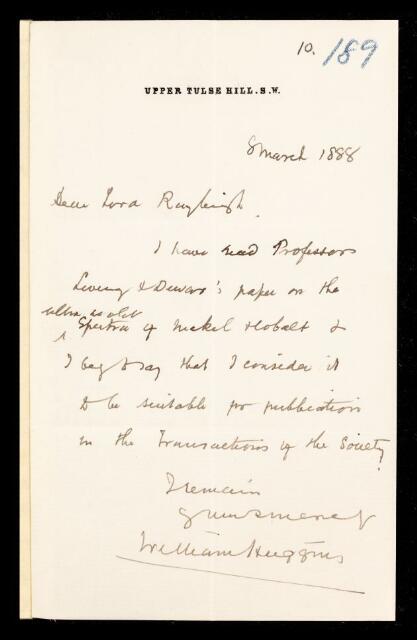 10. 189
UPPER TULSE HILL. S.W.
8 March 1888
Dear Lord Rayleigh,
I have read Professors
Liveing & Dewar's paper on the
ultra violet
Spectra of Nickel & Cobalt &
I beg to say that I consider it
to be suitable for publication
in the Transactions of the Society.
I remain
Yours sincerely
William Huggins